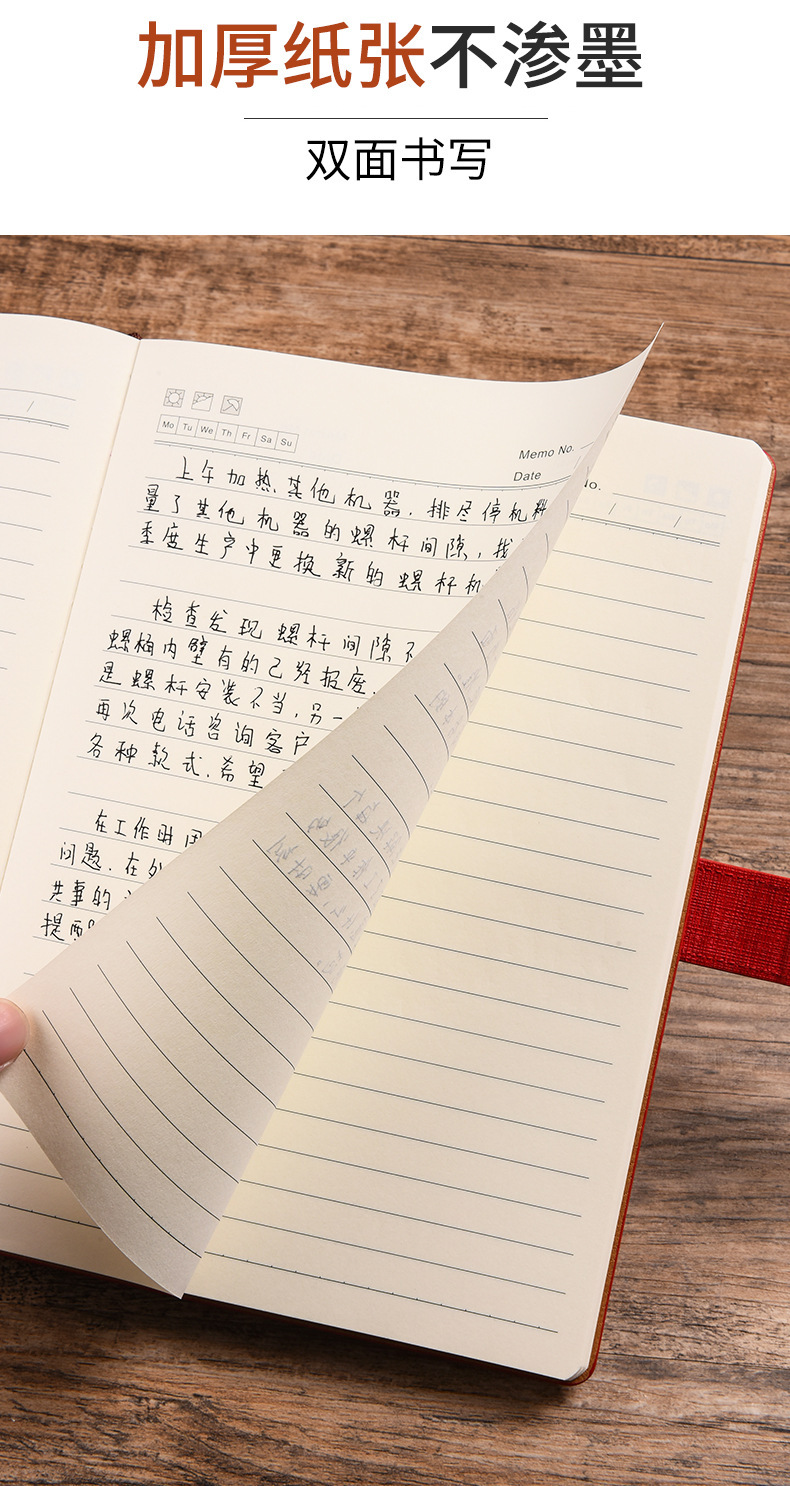 加厚纸张不渗墨
双面书写
Mo Tu We Th Fr Sa Su
Memo No.
Date
No.
上午加热其他机器，排尽停机
量了其他机器的螺杆间隙，找
季度生产中更换新的螺杆机
检查发现螺杆间隙不
螺桶内壁有的已经报废.
是螺杆安装不当，另一
再次电话咨询客户
各种款式.希望
在工作时
问题.在外
共事的
提